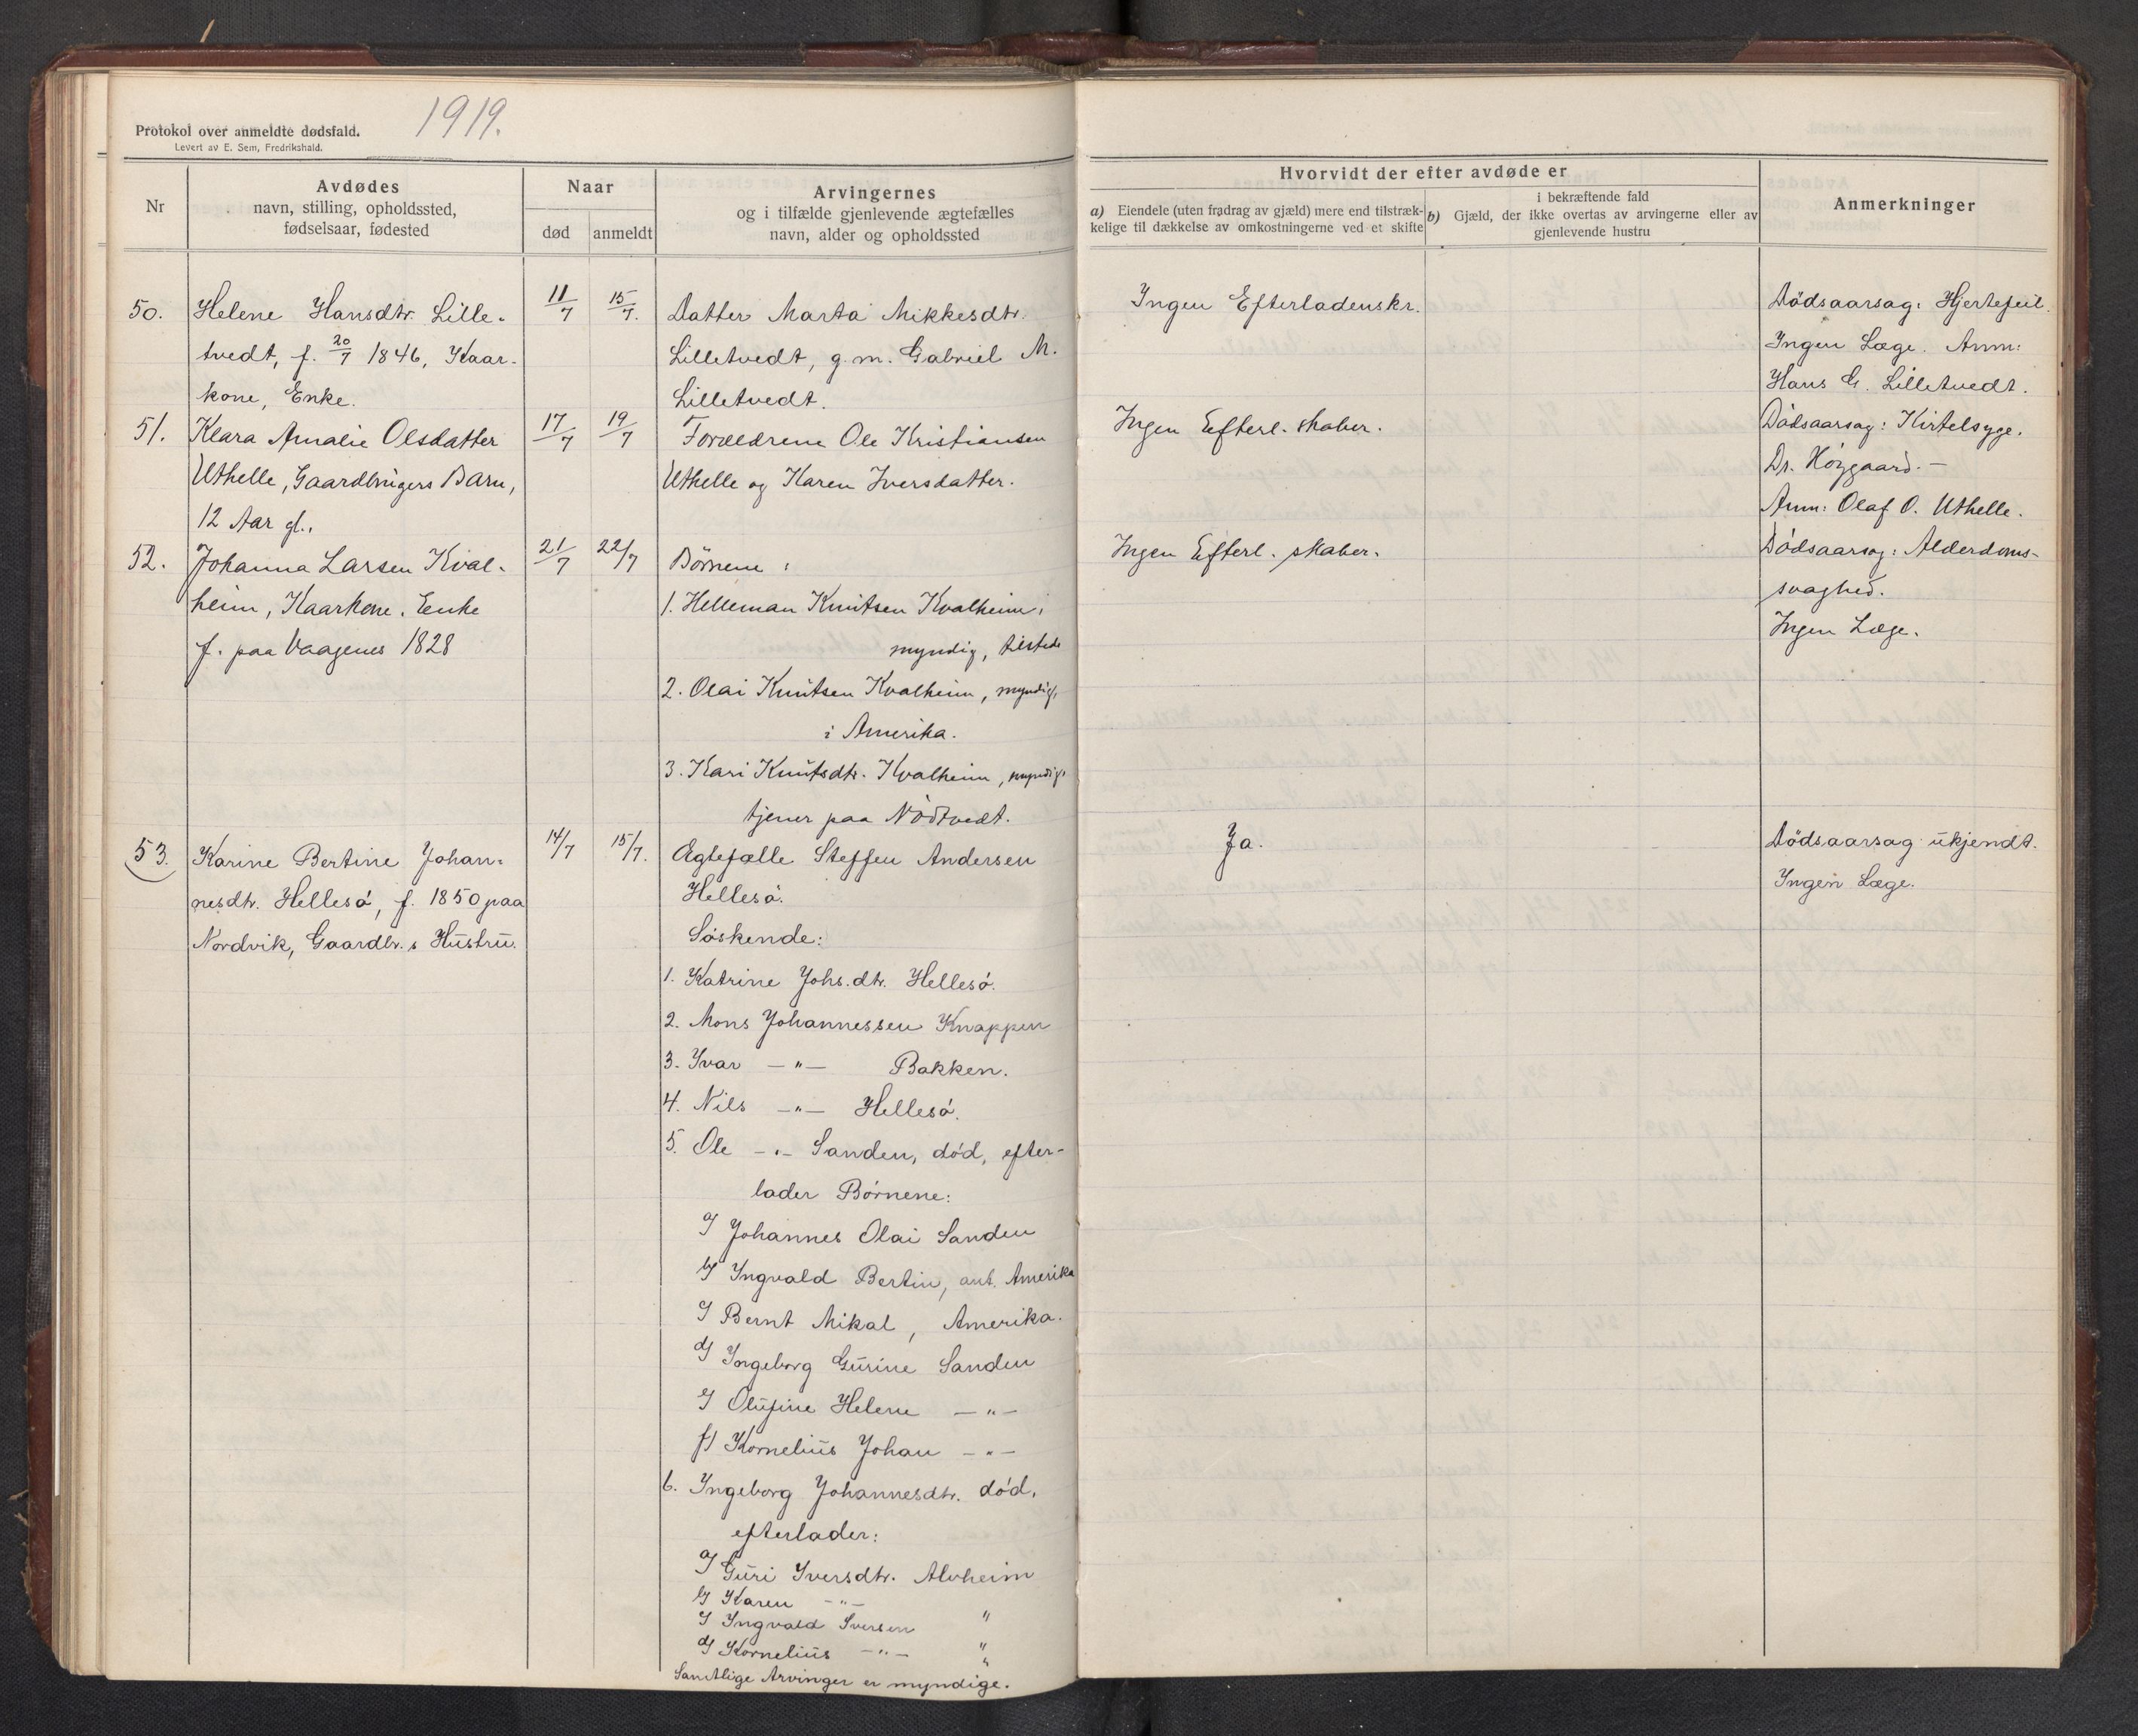 1919.
Protokol over anmeldte dødsfald.
Levert av E. Sem, Fredrikshald.
Nr
Avdødes
navn, stilling, opholdssted,
fødselsaar, fødested
Naar
død
anmeldt
Arvingernes
og i tilfælde gjenlevende ægtefælles
navn, alder og opholdssted
Hvorvidt der efter avdøde er
a) Eiendele (uten fradrag av gjæld) mere end tilstræk-
kelige til dækkelse av omkostningerne ved et skifte
i bekræftende fald
b) Gjæld, der ikke overtas av arvingerne eller av
gjenlevende hustru
Anmerkninger
50.
Helene Hansdtr. Lille-
tvedt, f. 20/7 1846, Kaar-
kone, Enke.
11/7
15/7.
Datter Marta Mikkesdtr.
Lilletvedt, g.m. Gabriel M.
Lilletvedt.
Ingen Efterladenskr.
Dödsaarsag: Hjertefeil.
Ingen Læge. Anm:
Hans G. Lilletvedt.
51.
Klara Amalie Olsdatter
Uthelle, Gaardbrugers Barn,
12 Aar gl.,
17/7
19/7
Forældrene Ole Kristiansen
Uthelle og Karen Iversdatter.
Ingen Efterl. skaber.
Dödsaarsag: Kirtelsyge.
Dr. Höygaard. –
Anm: Olaf O. Uthelle.
52.
Johanna Larsen Kval-
heim, Kaarkone. Enke
f. paa Vaagenes 1828
21/7
22/7
Börnene:
1. Helleman Knutsen Kvalheim,
myndig, tilstede
2. Olai Knutsen Kvalheim, myndig,
i Amerika.
3. Kari Knutsdtr. Kvalheim, myndig,
tjener paa Nödtvedt.
Ingen Efterl. skaber.
Dödsaarsag: Alderdoms-
svaghed.
Ingen Læge.
53.
Karine Bertine Johan-
nesdtr. Hellesö, f. 1850 paa
Nordvik, Gaardbr.s Hustru.
14/7
15/7.
Ægtefælle Steffen Andersen
Hellesö.
Söskende:
1. Katrine Johs.dtr. Hellesö.
2. Mons Johannessen Knappen
3. Ivar — " — Bakken.
4. Nils — " — Hellesö.
5. Ole — " — Sanden, död, efter-
lader Börnene:
a) Johannes Olai Sanden
b) Ingvald Bertin, ant. Amerika
c) Bernt Mikal, Amerika.
d) Ingeborg Gurine Sanden
e) Olufine Helene — " —
f) Kornelius Johan — " —
6. Ingeborg Johannesdtr. död,
efterlader:
a) Guri Iversdtr. Alvheim
b) Karen — " —
c) Ingvald Iversen "
d) Kornelius — " — "
Samtlige Arvinger er myndige.
Ja.
Dödsaarsag ukjendt.
Ingen Læge.